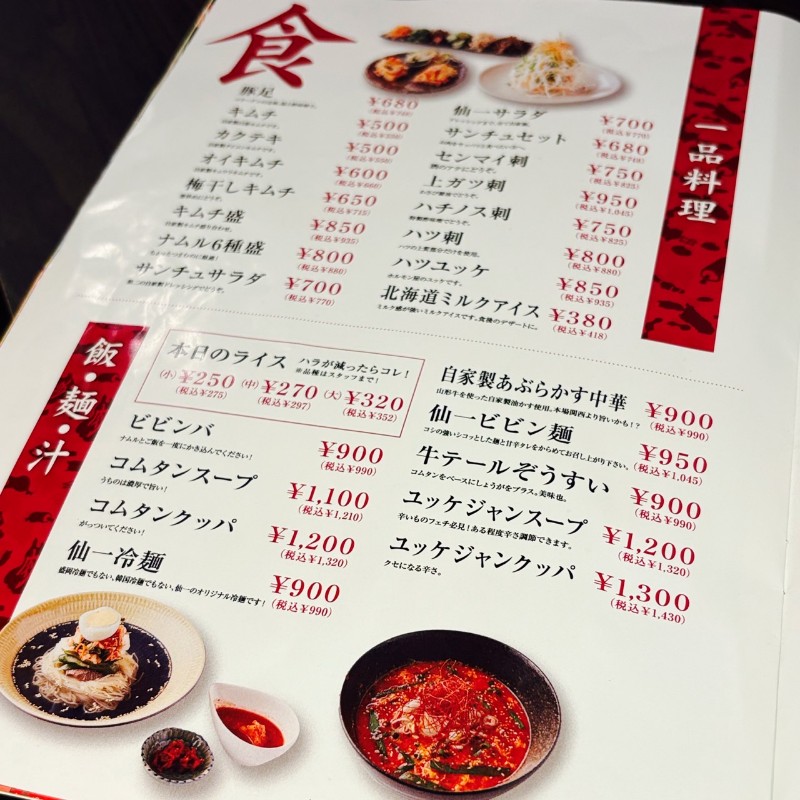 食
一品料理
豚足
¥680
キムチ
¥500
カクテキ
¥500
オイキムチ
¥600
梅干しキムチ
¥650
(税込¥715)
キムチ盛
¥850
(税込¥935)
ナムル6種盛
¥800
(税込¥880)
サンチュサラダ
¥700
(税込¥770)
仙一サラダ
¥700
(税込¥770)
サンチュセット
¥680
(税込¥748)
センマイ刺
¥750
(税込¥825)
上ガツ刺
¥950
(税込¥1,045)
ハチノス刺
¥750
(税込¥825)
ハツ刺
ハツの上質部分だけを使用。
¥800
(税込¥880)
ハツユッケ
ホルモン屋のユッケです。
¥850
(税込¥935)
北海道ミルクアイス
ミルク感が強いミルクアイスです。食後のデザートに。
¥380
(税込¥418)
飯・麺・汁
本日のライス ハラが減ったらコレ!
※品種はスタッフまで!
(小)¥250 (中)¥270 (大)¥320
(税込¥275) (税込¥297) (税込¥352)
ビビンバ
ナムルとご飯を一度にかき込んでください!
¥900
(税込¥990)
コムタンスープ
うちのは濃厚で旨い!
¥1,100
(税込¥1,210)
コムタンクッパ
がっついてください!
¥1,200
(税込¥1,320)
仙一冷麺
盛岡冷麺でもない、韓国冷麺でもない、仙一のオリジナル冷麺です!
¥900
(税込¥990)
自家製あぶらかす中華
山形牛を使った自家製油かす使用。本場関西より旨いかも!?
¥900
(税込¥990)
仙一ビビン麺
コシの強いシコッとした麺と甘辛タレをからめてお召し上がり下さい。
¥950
(税込¥1,045)
牛テールぞうすい
コムタンをベースにしょうがをプラス。美味也。
¥900
(税込¥990)
ユッケジャンスープ
辛いものフェチ必見!ある程度辛さ調節できます。
¥1,200
(税込¥1,320)
ユッケジャンクッパ
クセになる辛さ。
¥1,300
(税込¥1,430)